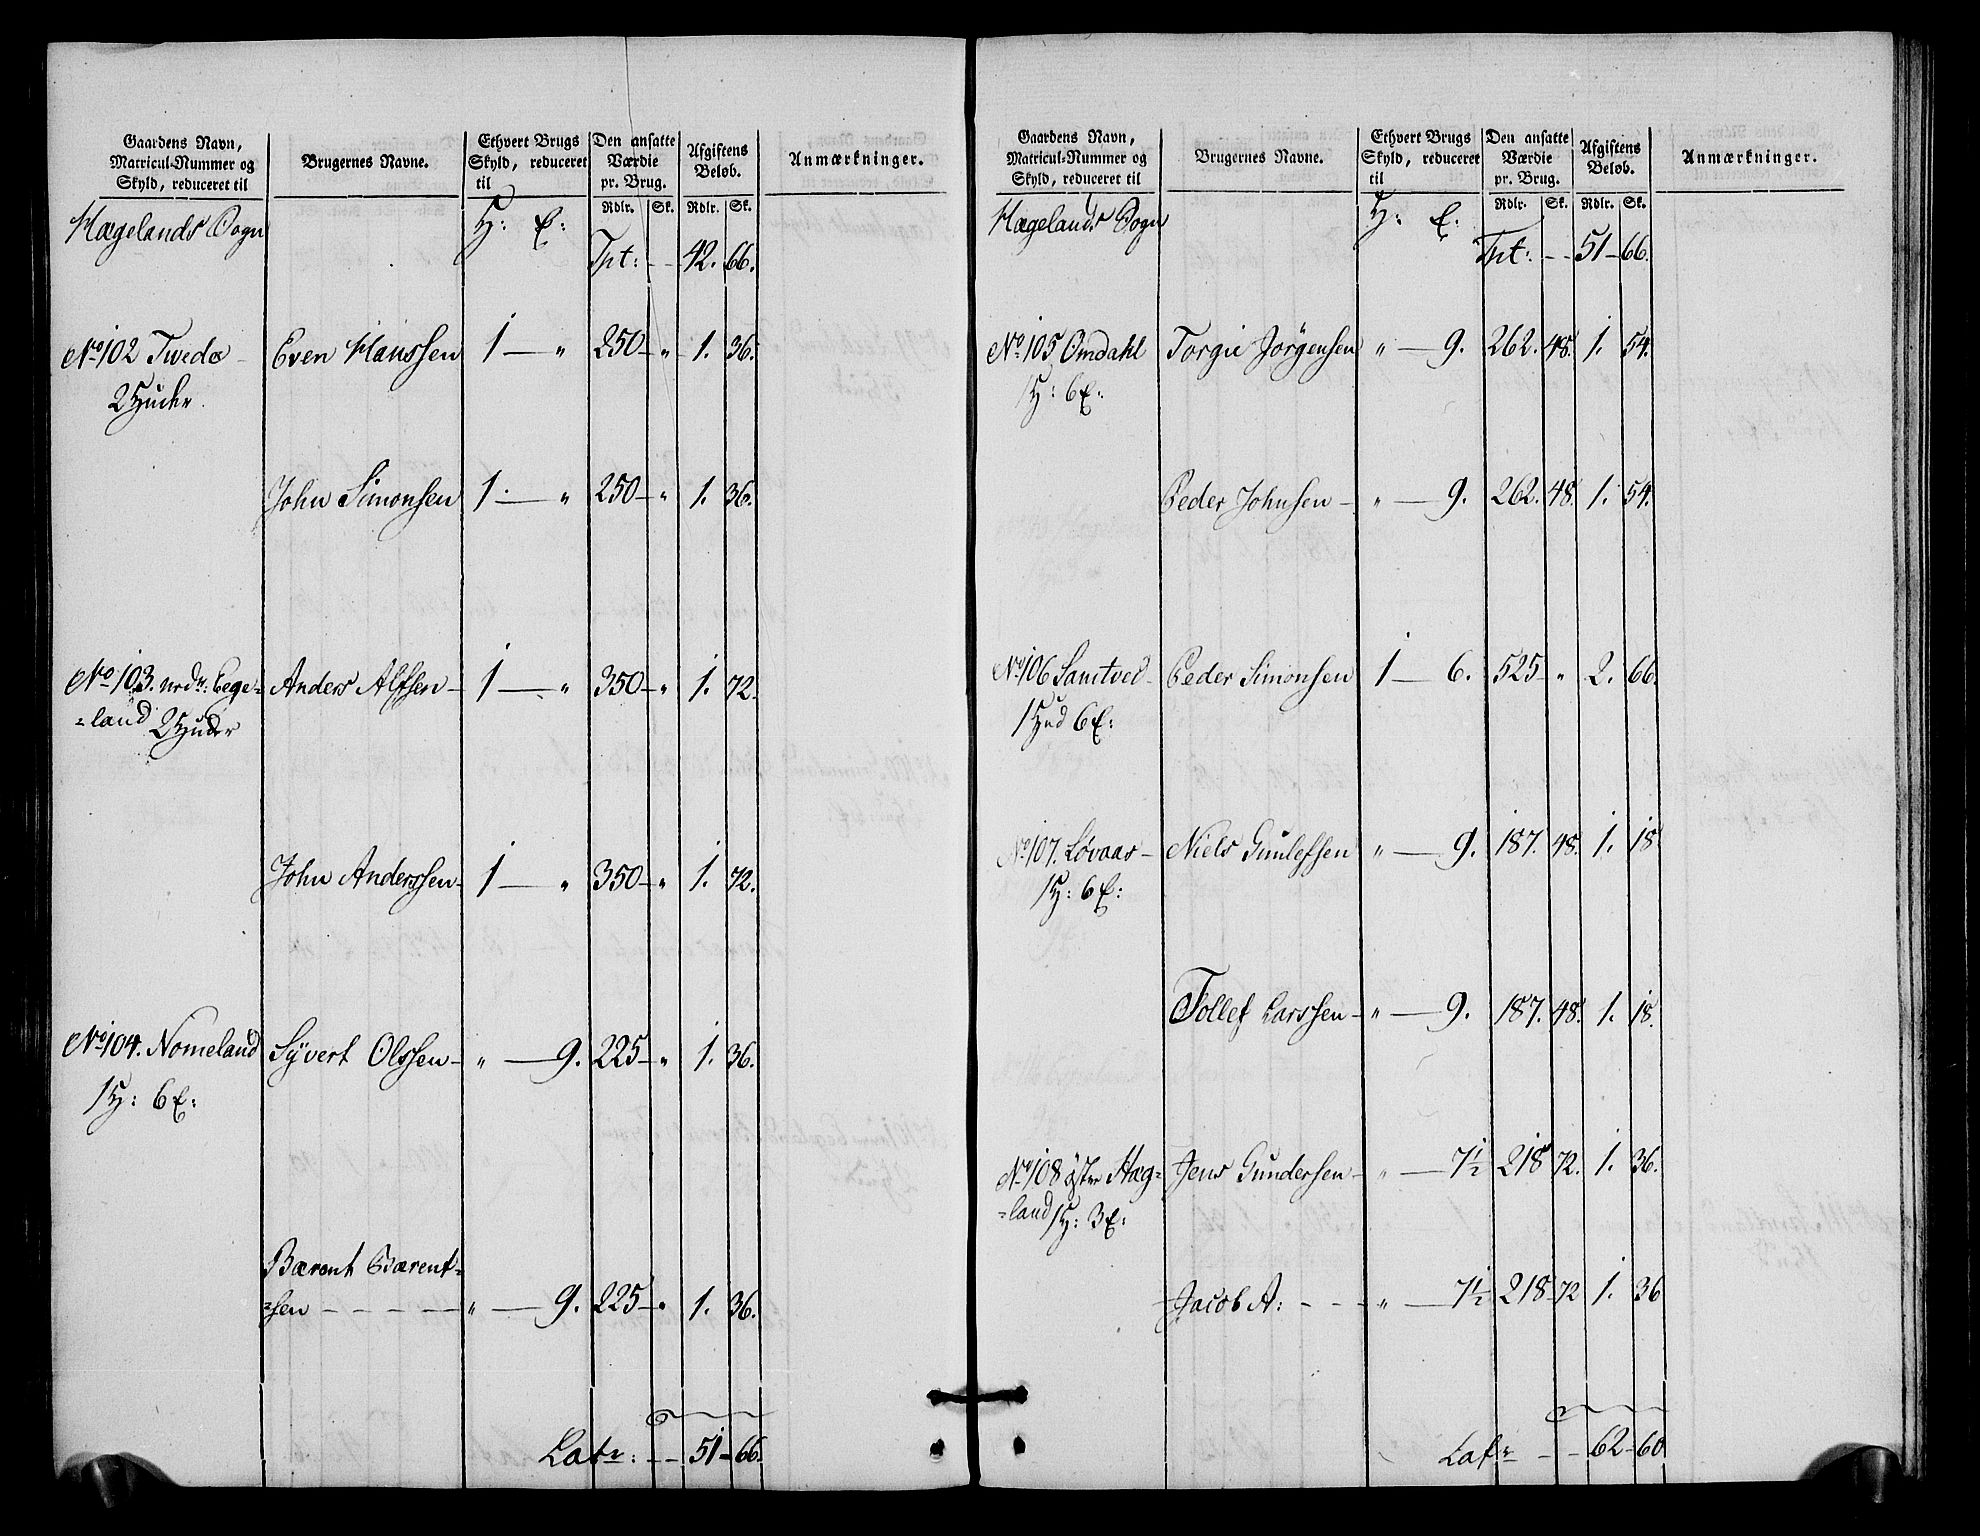 Gaardens Navn, Matricul-Nummer og Skyld, reduceret til | Brugernes Navne. | Ethvert Brugs Skyld, reduceret til | Den ansatte Værdie pr. Brug. | Afgiftens Beløb. | Anmærkninger.
Rdlr. | Sk. | Rdlr. | Sk.
Hægelands Sogn | H: E:
Tpt: - - 42. 66.
No 102 Twedo - | Even Hanssen | 1 — " | 250 — " | 1. 36.
2 Huder
John Simonsen | 1 . — " | 250 — " | 1. 36.
No 103. nrdr: Ege= | Anders Alfsen - | 1 — " | 350 — " | 1. 72.
=land 2 Huder
John Anderssen - | 1 — " | 350 — " | 1. 72.
No 104. Nomeland | Syvert Olssen - | " — 9. | 225 — " | 1. 36.
1 H: 6 E:
Bærent Bærent=
=sen - - - - - | " — 9. | 225 — " | 1. 36.
Latr: - - 51 - 66.
Gaardens Navn, Matricul-Nummer og Skyld, reduceret til | Brugernes Navne. | Ethvert Brugs Skyld, reduceret til | Den ansatte Værdie pr. Brug. | Afgiftens Beløb. | Anmærkninger.
Rdlr. | Sk. | Rdlr. | Sk.
Hægelands Sogn | H: E:
Tpt: - - 51 - 66.
No 105 Omdahl | Torgie Jörgensen | " — 9. | 262. 48. | 1. 54.
1 H: 6 E:
Peder Johnsen - | " — 9. | 262. 48. | 1. 54.
No 106 Samtved - | Peder Simonsen | 1 — 6. | 525 - " | 2. 66.
1 Hud 6 E:
No 107. Løvaas - | Niels Gunlefsen | " — 9. | 187. 48. | 1. 18
1 H: 6 E:
Tollef Larssen - | " — 9. | 187. 48. | 1. 18.
No 108 öster Hæg= | Jens Gundersen - | " — 7½ | 218 72. | 1. 36.
=land 1 H: 3 E:
Jacob A: - - - | " — 7½ | 218 - 72 | 1. 36
Latr - - 62 - 60